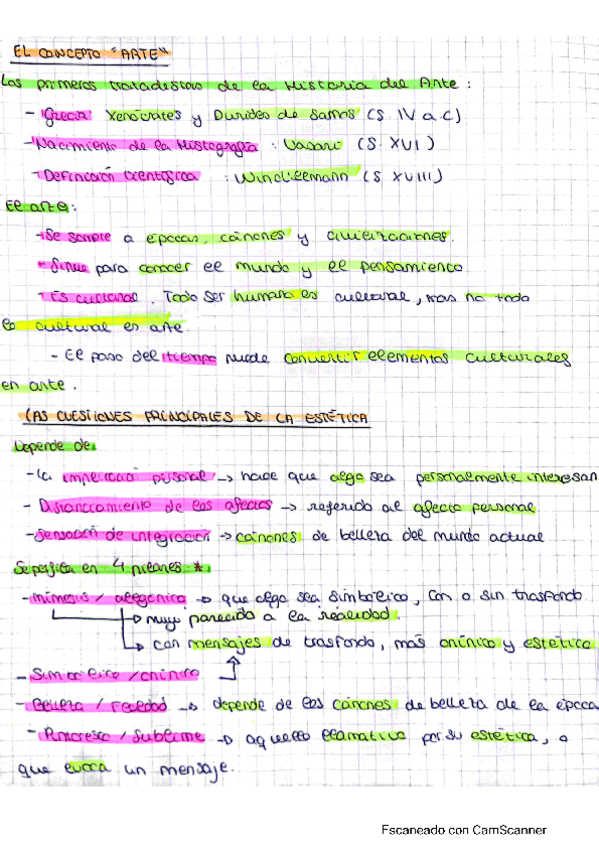 EL CONCEPTO "ARTE"
Los primeros tratadistas de la Historia del Arte :
- Grecia: Xenócrates y Durides de Samos (S. IV a.C)
- Nacimiento de la Histografía : Vasari (S. XVI)
- Definición científica : Winckelmann (S XVIII)
El arte:
- Se somete a épocas, cánones y civilizaciones.
- Sirve para conocer el mundo y el pensamiento
- Es cultural. Todo ser humano es cultural, mas no todo
lo cultural es arte.
- El paso del tiempo puede convertir elementos culturales
en arte.
LAS CUESTIONES PRINCIPALES DE LA ESTÉTICA
Depende de:
- La implicación personal -> hace que algo sea personalmente interesan
- Distanciamiento de los afectos -> referido al afecto personal
- Sensación de integración -> cánones de belleza del mundo actual
Se perfila en 4 pilares: *
- Mimesis / alegórica -> que algo sea simbólico, con o sin trasfondo
-> muy parecido a la realidad.
-> con mensajes de trasfondo, más onírico y estético
- Simbólico / onírico
- Belleza / Fealdad -> depende de los cánones de belleza de la época
- Pintoresco / Sublime -> aquello llamativo por su estética, o
que evoca un mensaje.
Escaneado con CamScanner